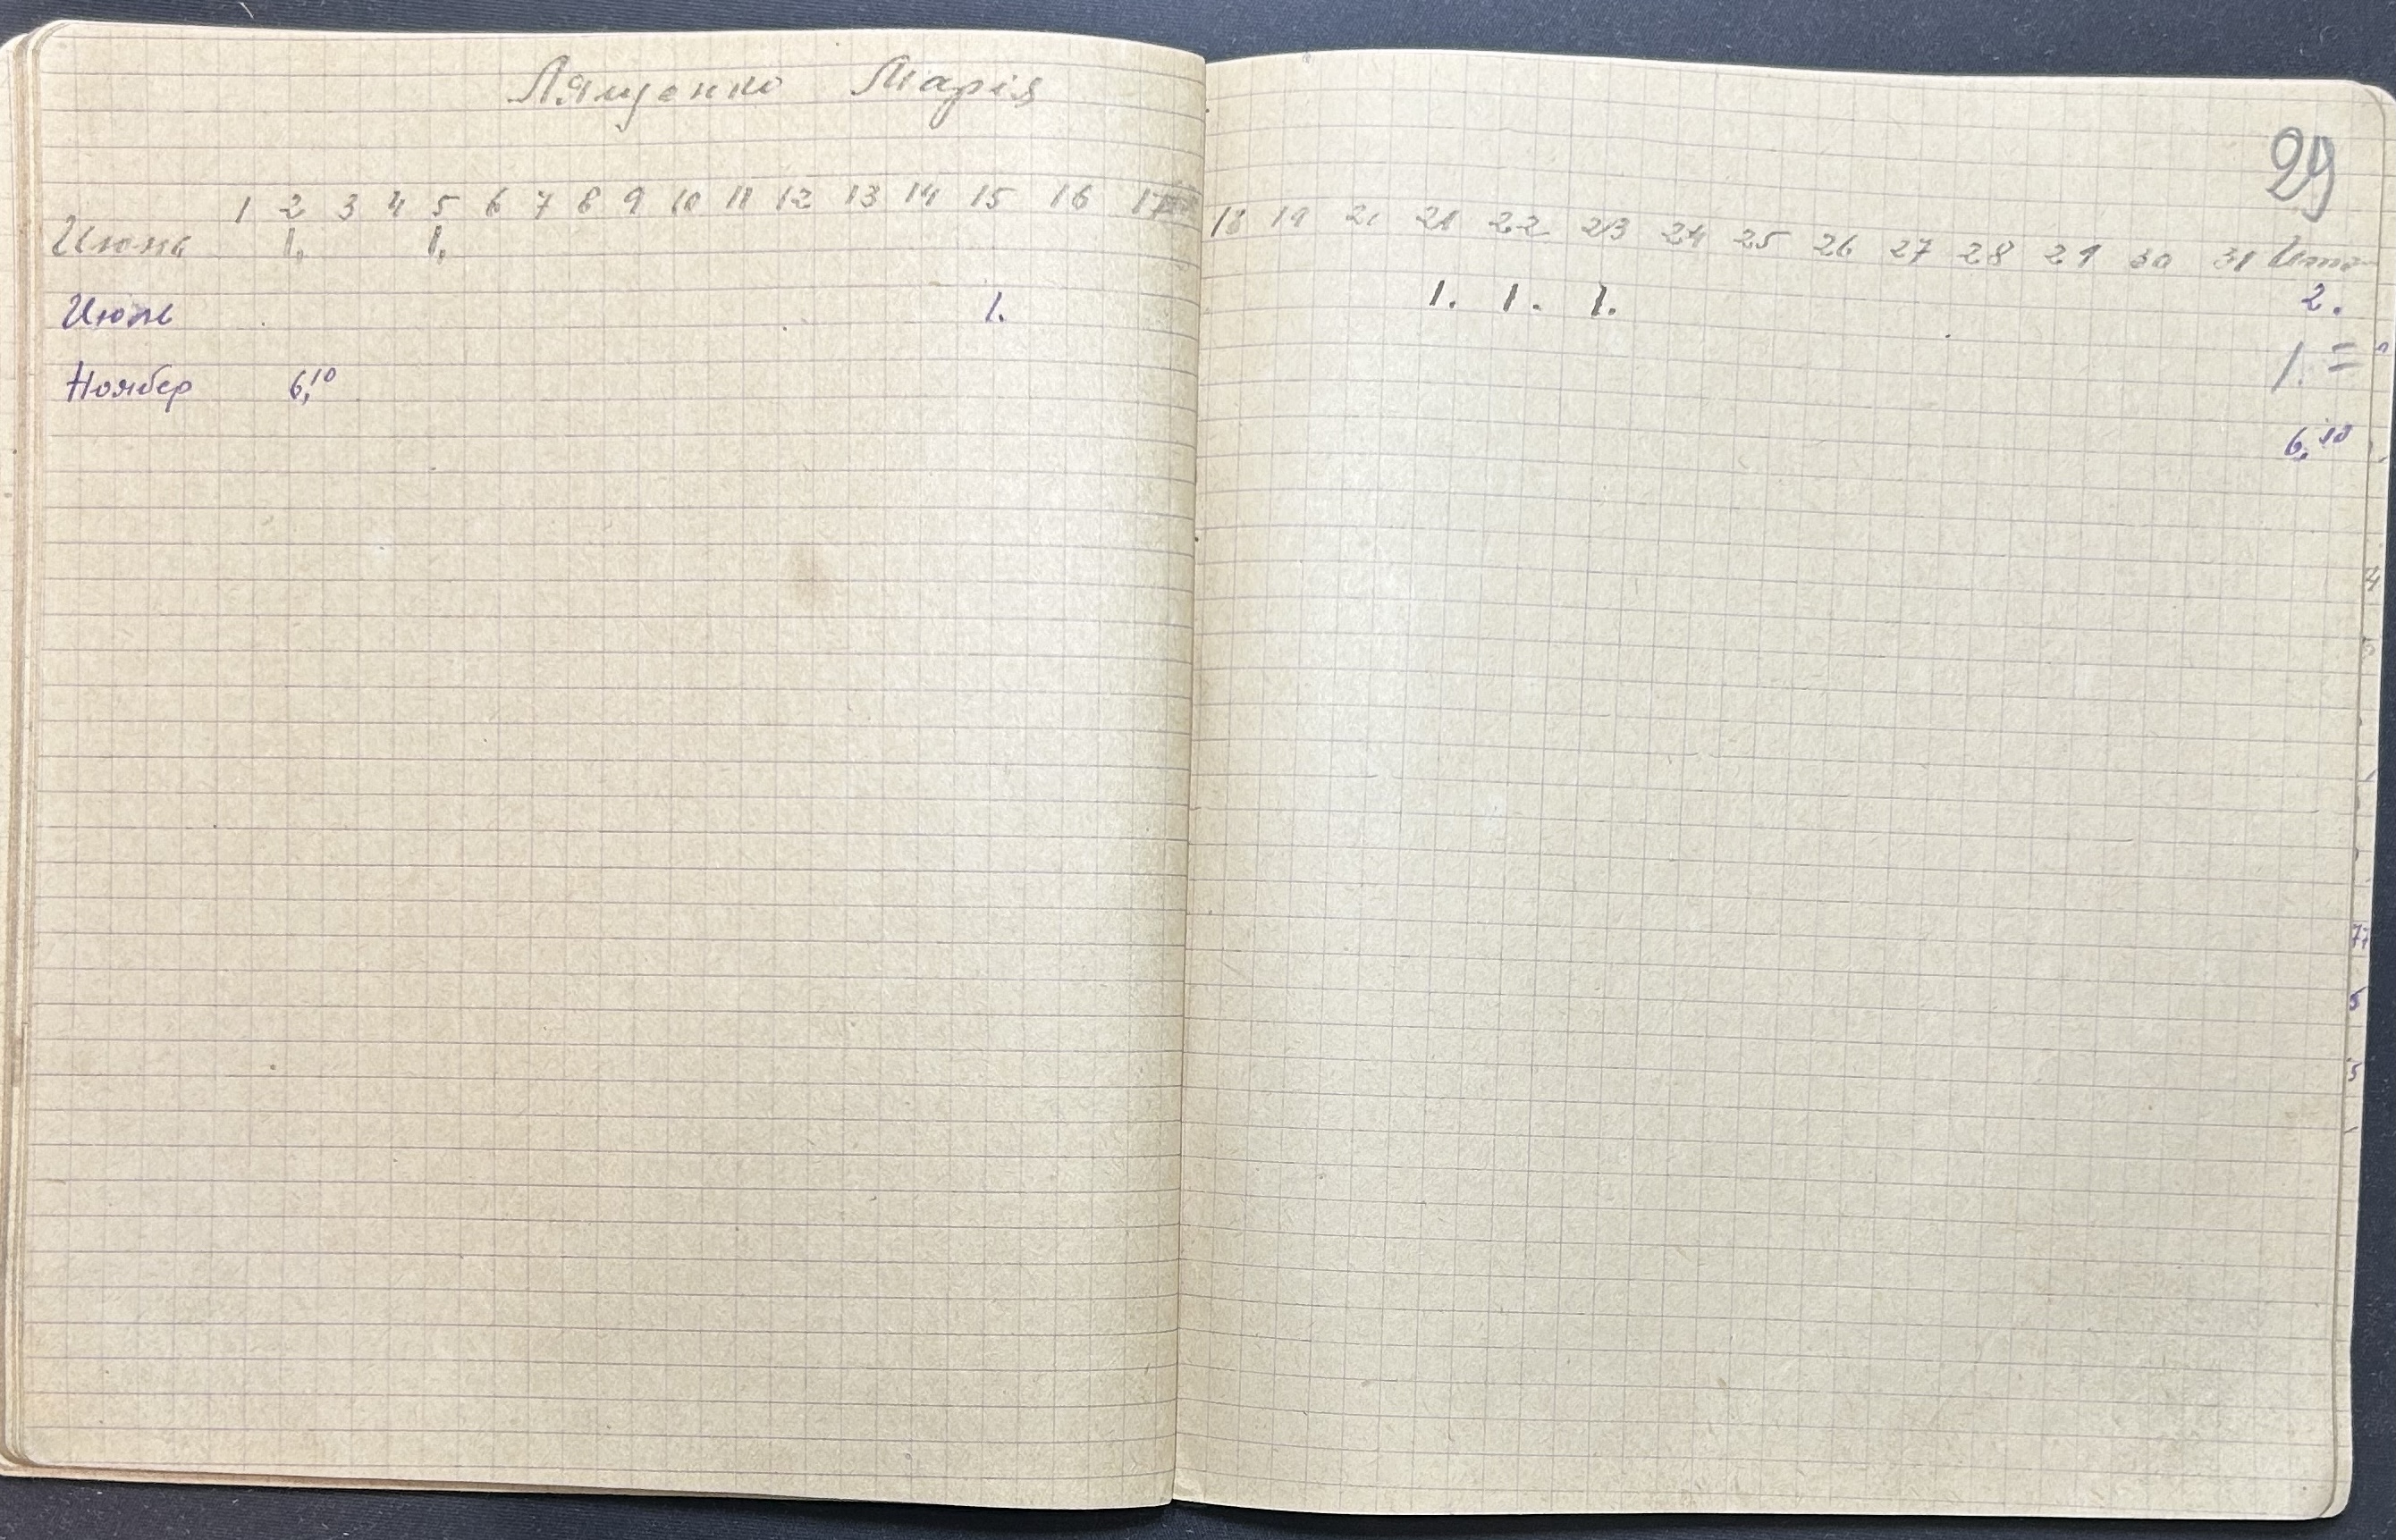 Лященко Марія
29
1 2 3 4 5 6 7 8 9 10 11 12 13 14 15 16 17 18 19 20 21 22 23 24 25 26 27 28 29 30 31 Итог
Июнь 1. 1.
Июль 1. 1. 1. 1. 2.
1. =
Ноябер 6,10
6.10